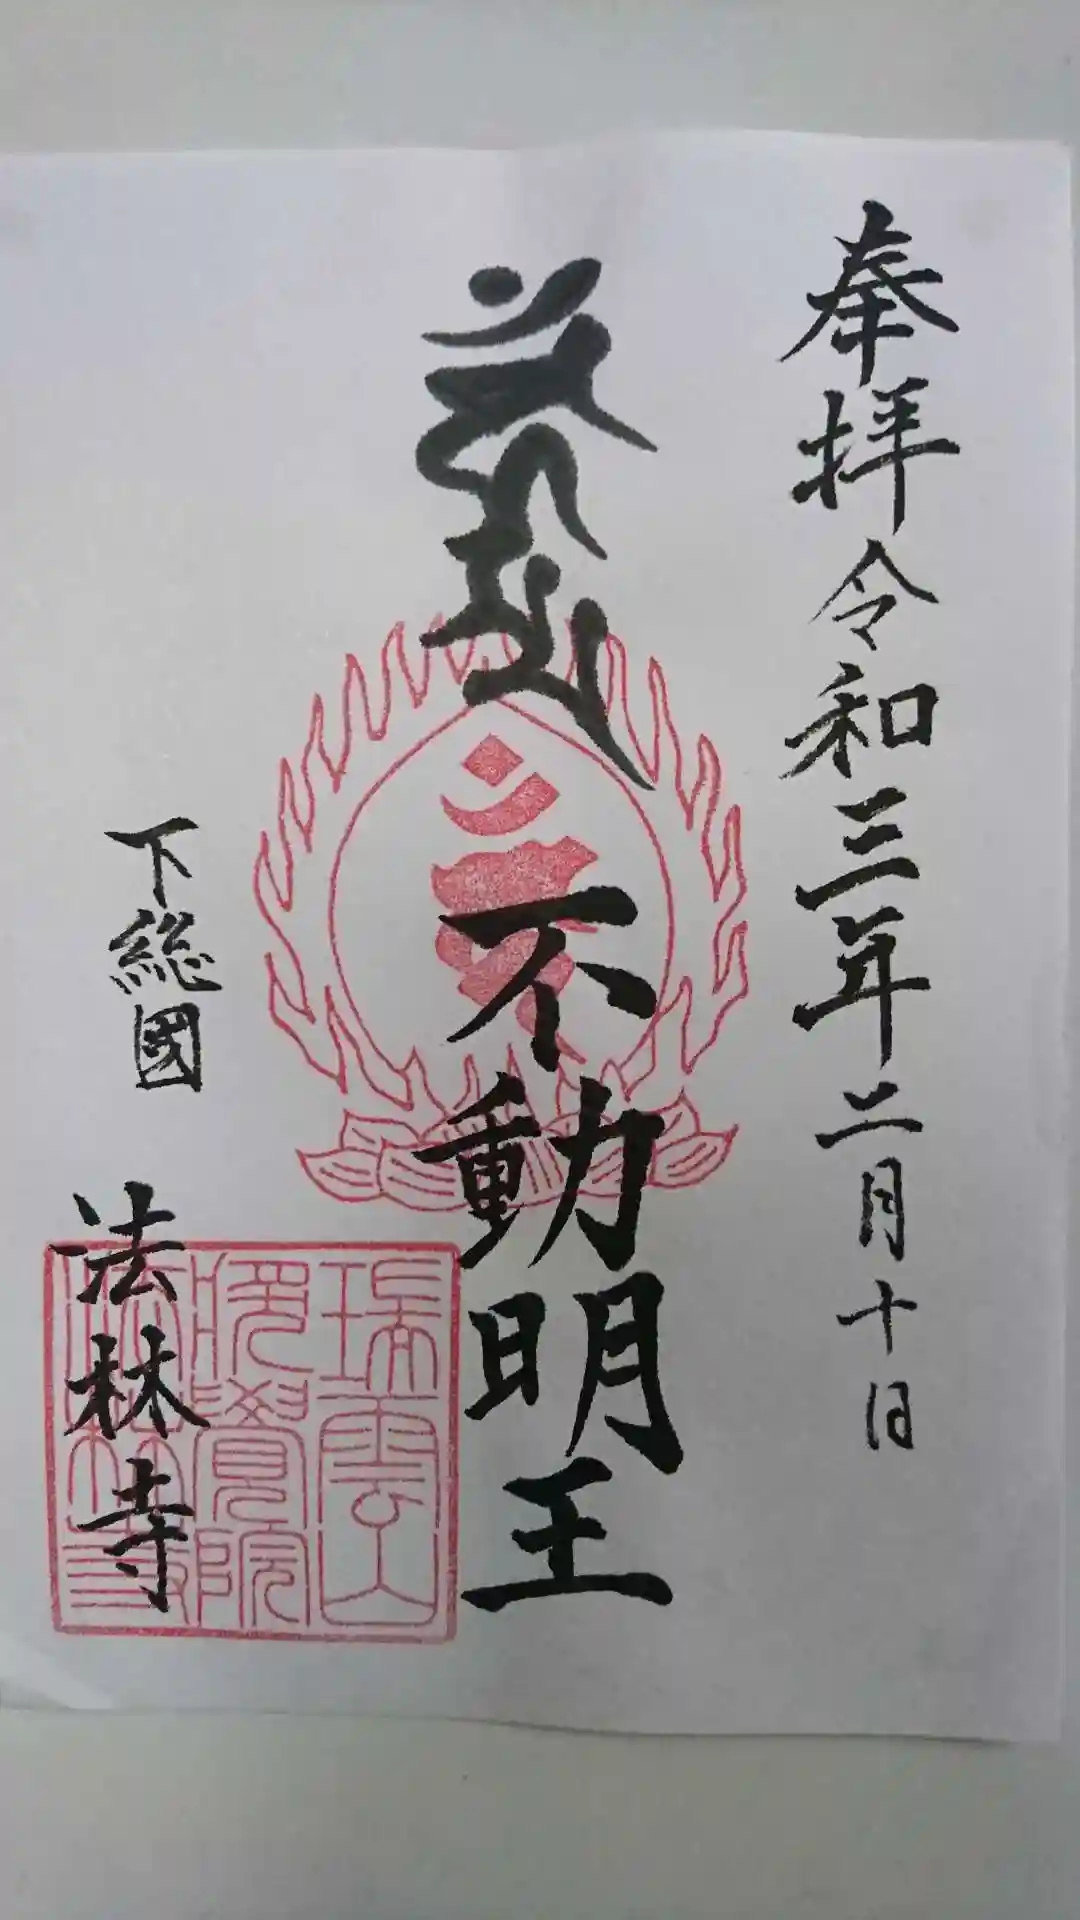 奉拝 令和三年二月十日
不動明王
下総國 法林寺
瑞雲山
晄覺院
法林寺